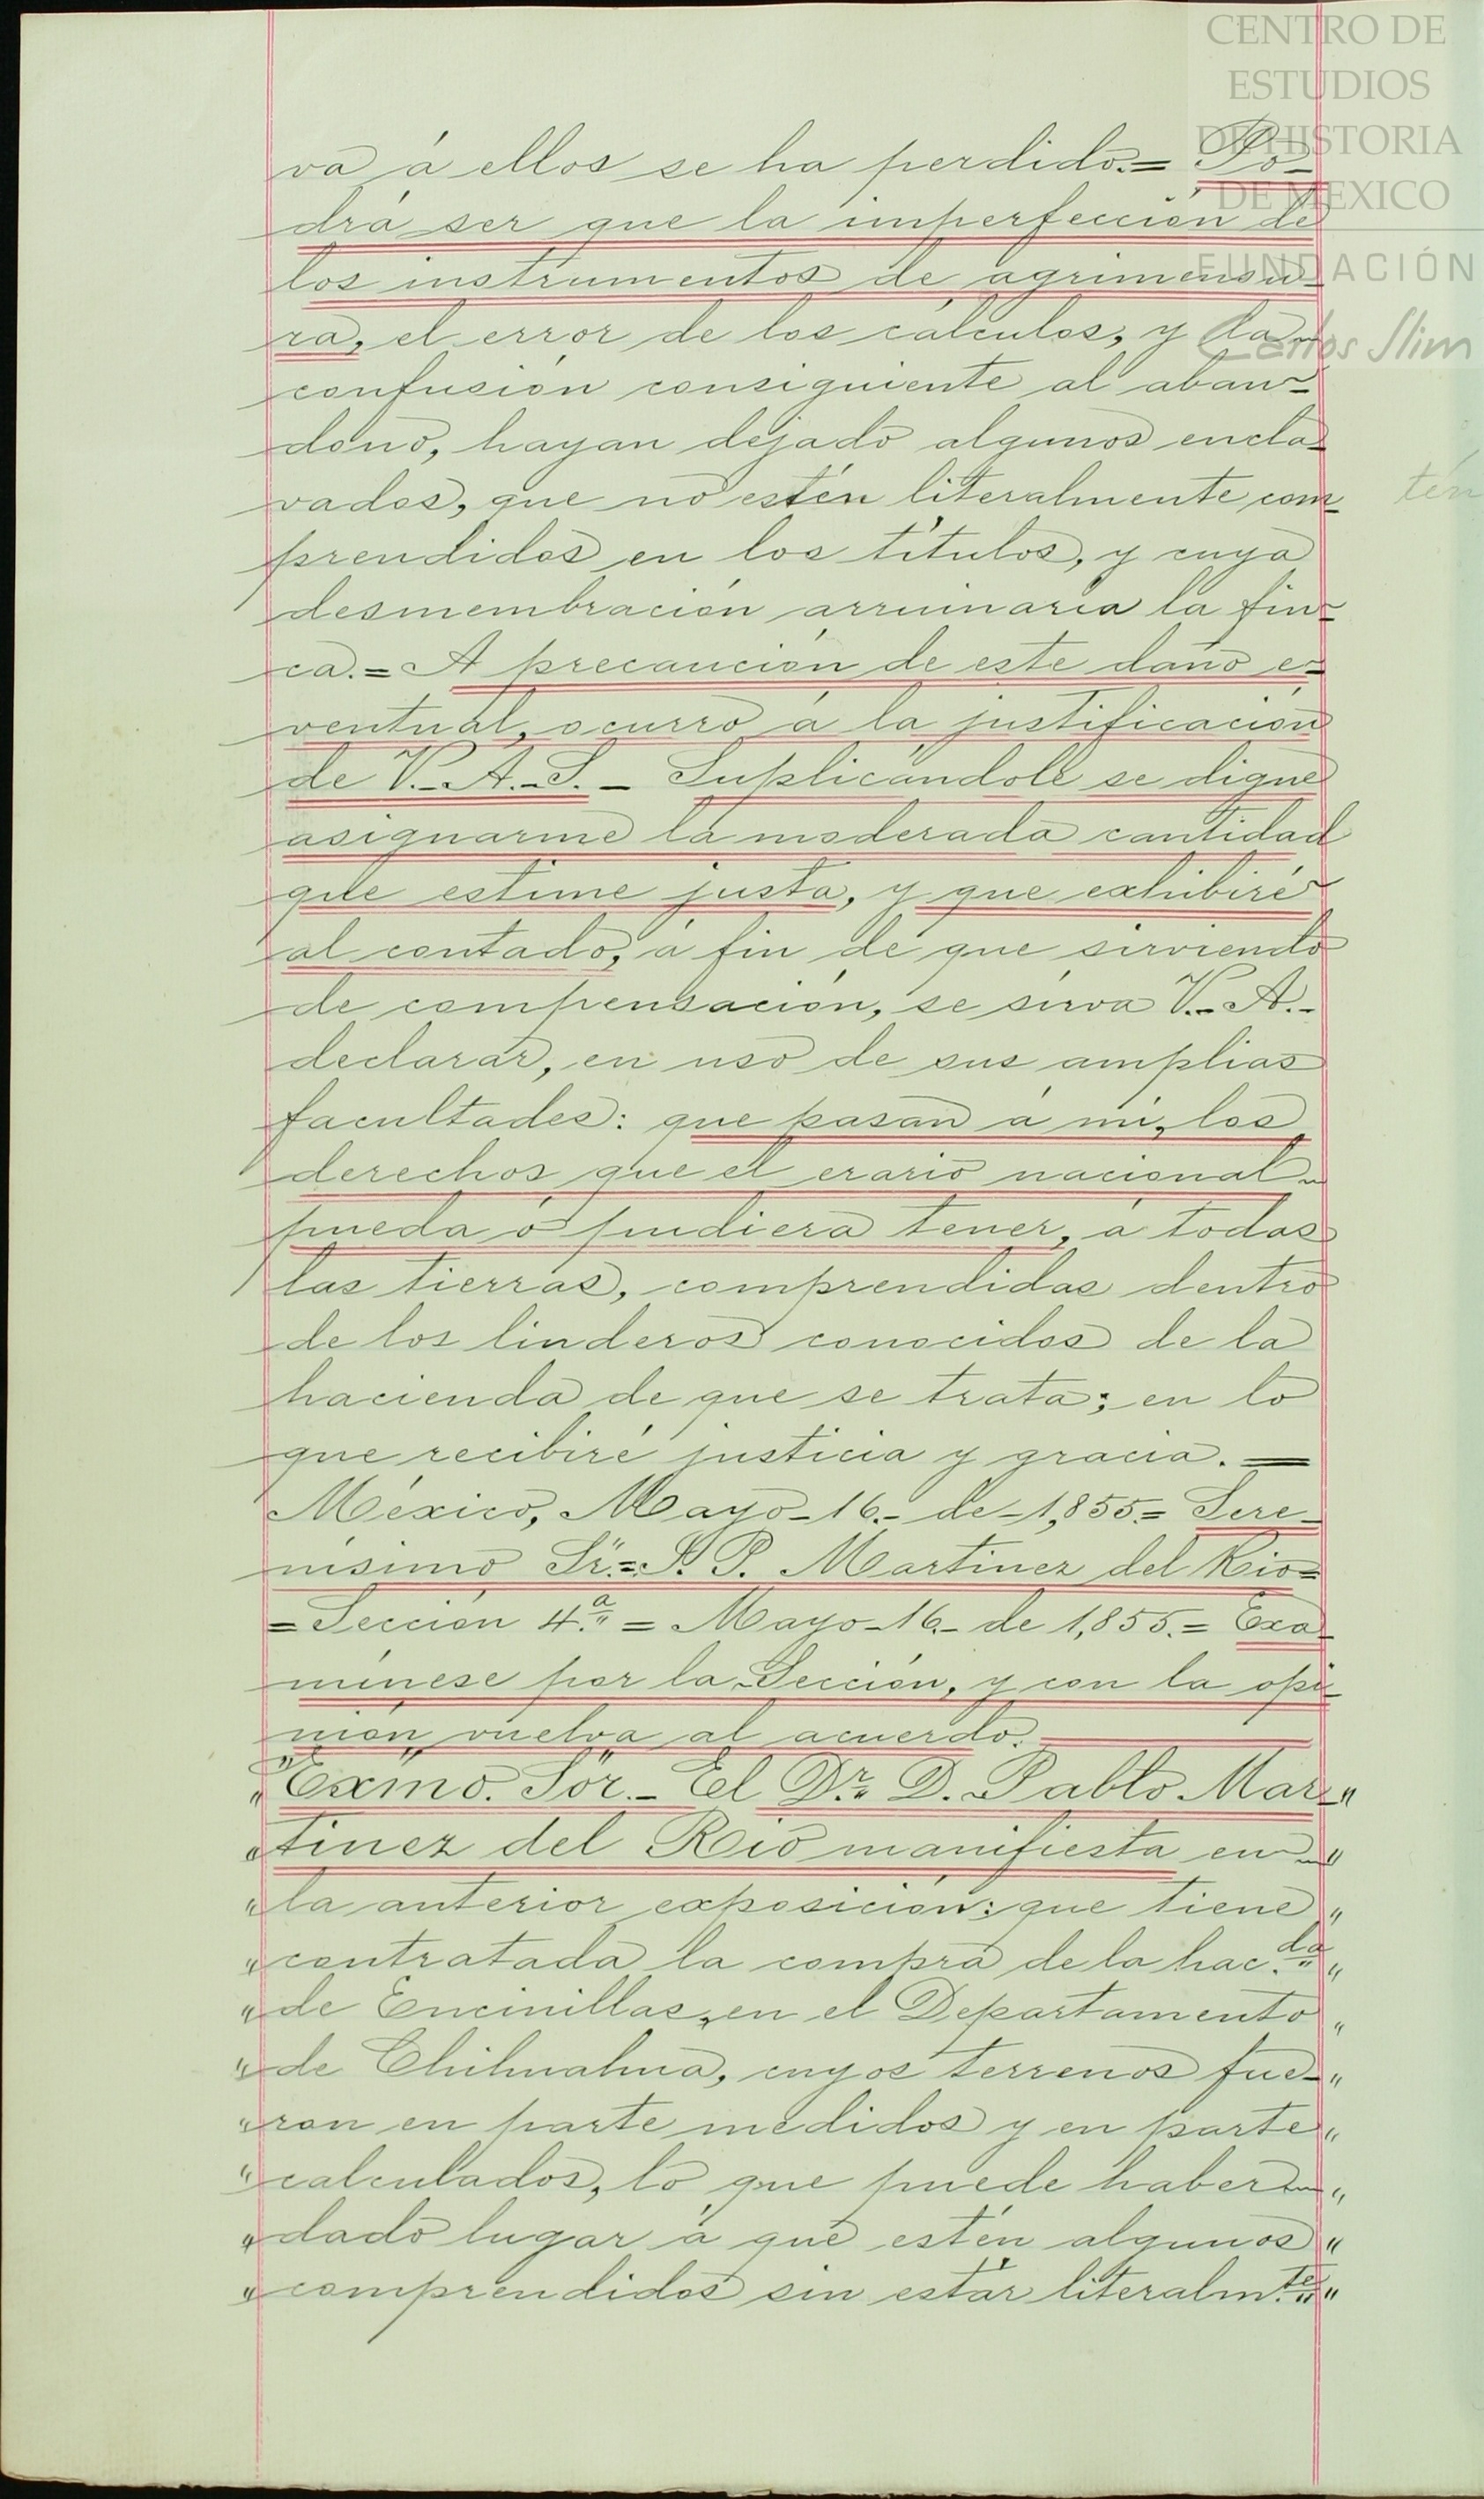 CENTRO DE
ESTUDIOS
DE HISTORIA
DE MEXICO
FUNDACIÓN
Carlos Slim
va á ellos se ha perdido.= Po-
drá ser que la imperfección de
los instrumentos de agrimensu-
ra, el error de los cálculos, y la
confusión consiguiente al aban-
dono, hayan dejado algunos encla-
vados, que no estén literalmente com-
tén
prendidos en los títulos, y cuya
desmembración arruinaría la fin-
ca.= A precaución de este daño e-
ventual, ocurro á la justificación
de V.-A.-S. - Suplicándole se digne
asignarme la moderada cantidad
que estime justa, y que exhibiré
al contado, á fin de que sirviendo
de compensación, se sirva V.- A.-
declarar, en uso de sus amplias
facultades: que pasan á mí, los
derechos que el erario nacional
pueda ó pudiera tener, á todas
las tierras, comprendidas dentro
de los linderos conocidos de la
hacienda de que se trata; en lo
que recibiré justicia y gracia. =
México, Mayo-16.- de-1,855= Sere-
nísimo Sr.= S. P. Martinez del Rio=
= Sección 4.ª = Mayo-16.- de 1,855.= Exa-
mínese por la Sección, y con la opi-
nión vuelva al acuerdo.
"Exmo. Sor.- El Dr. D. Pablo Mar-"
"tinez del Rio manifiesta en"
"la anterior exposición: que tiene"
"contratada la compra de la hac.da"
"de Encinillas, en el Departamento"
"de Chihuahua, cuyos terrenos fue-"
"ron en parte medidos y en parte"
"calculados, lo que puede haber"
"dado lugar á que estén algunos"
"comprendidos sin estar literalm.te"